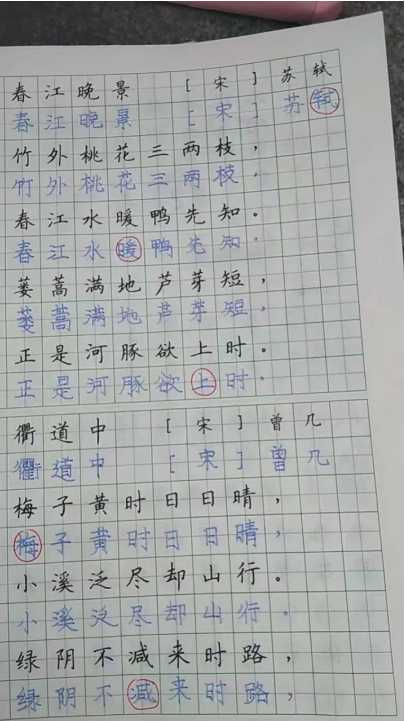 春江晚景 [宋] 苏轼
春江晚景 [宋] 苏轼
竹外桃花三两枝，
竹外桃花三两枝。
春江水暖鸭先知。
春江水暖鸭先知。
蒌蒿满地芦芽短，
蒌蒿满地芦芽短，
正是河豚欲上时。
正是河豚欲上时。
衢道中 [宋] 曾几
衢道中 [宋] 曾几
梅子黄时日日晴，
梅子黄时日日晴，
小溪泛尽却山行。
小溪泛尽却山行。
绿阴不减来时路，
绿阴不减来时路，